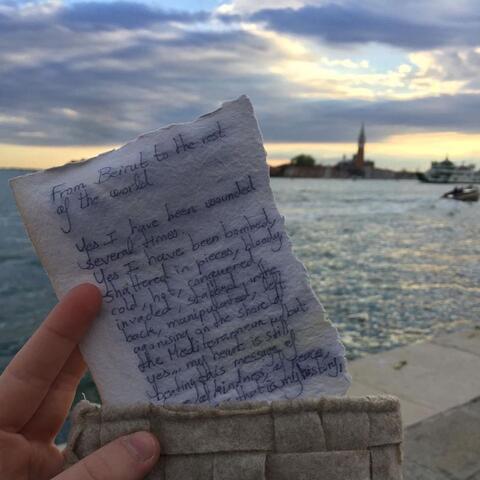 From Beirut to the rest
of the world
Yes I have been wounded
several times.
Yes I have been bombed,
shattered in pieces, bloody
cold, hot, conquered,
invaded, stabbed in the
back, manipulated, left
agonising on the shore of
the Mediterranean but
yes... my heart is still
beating this message of
kindness, of peace
that is my destiny,